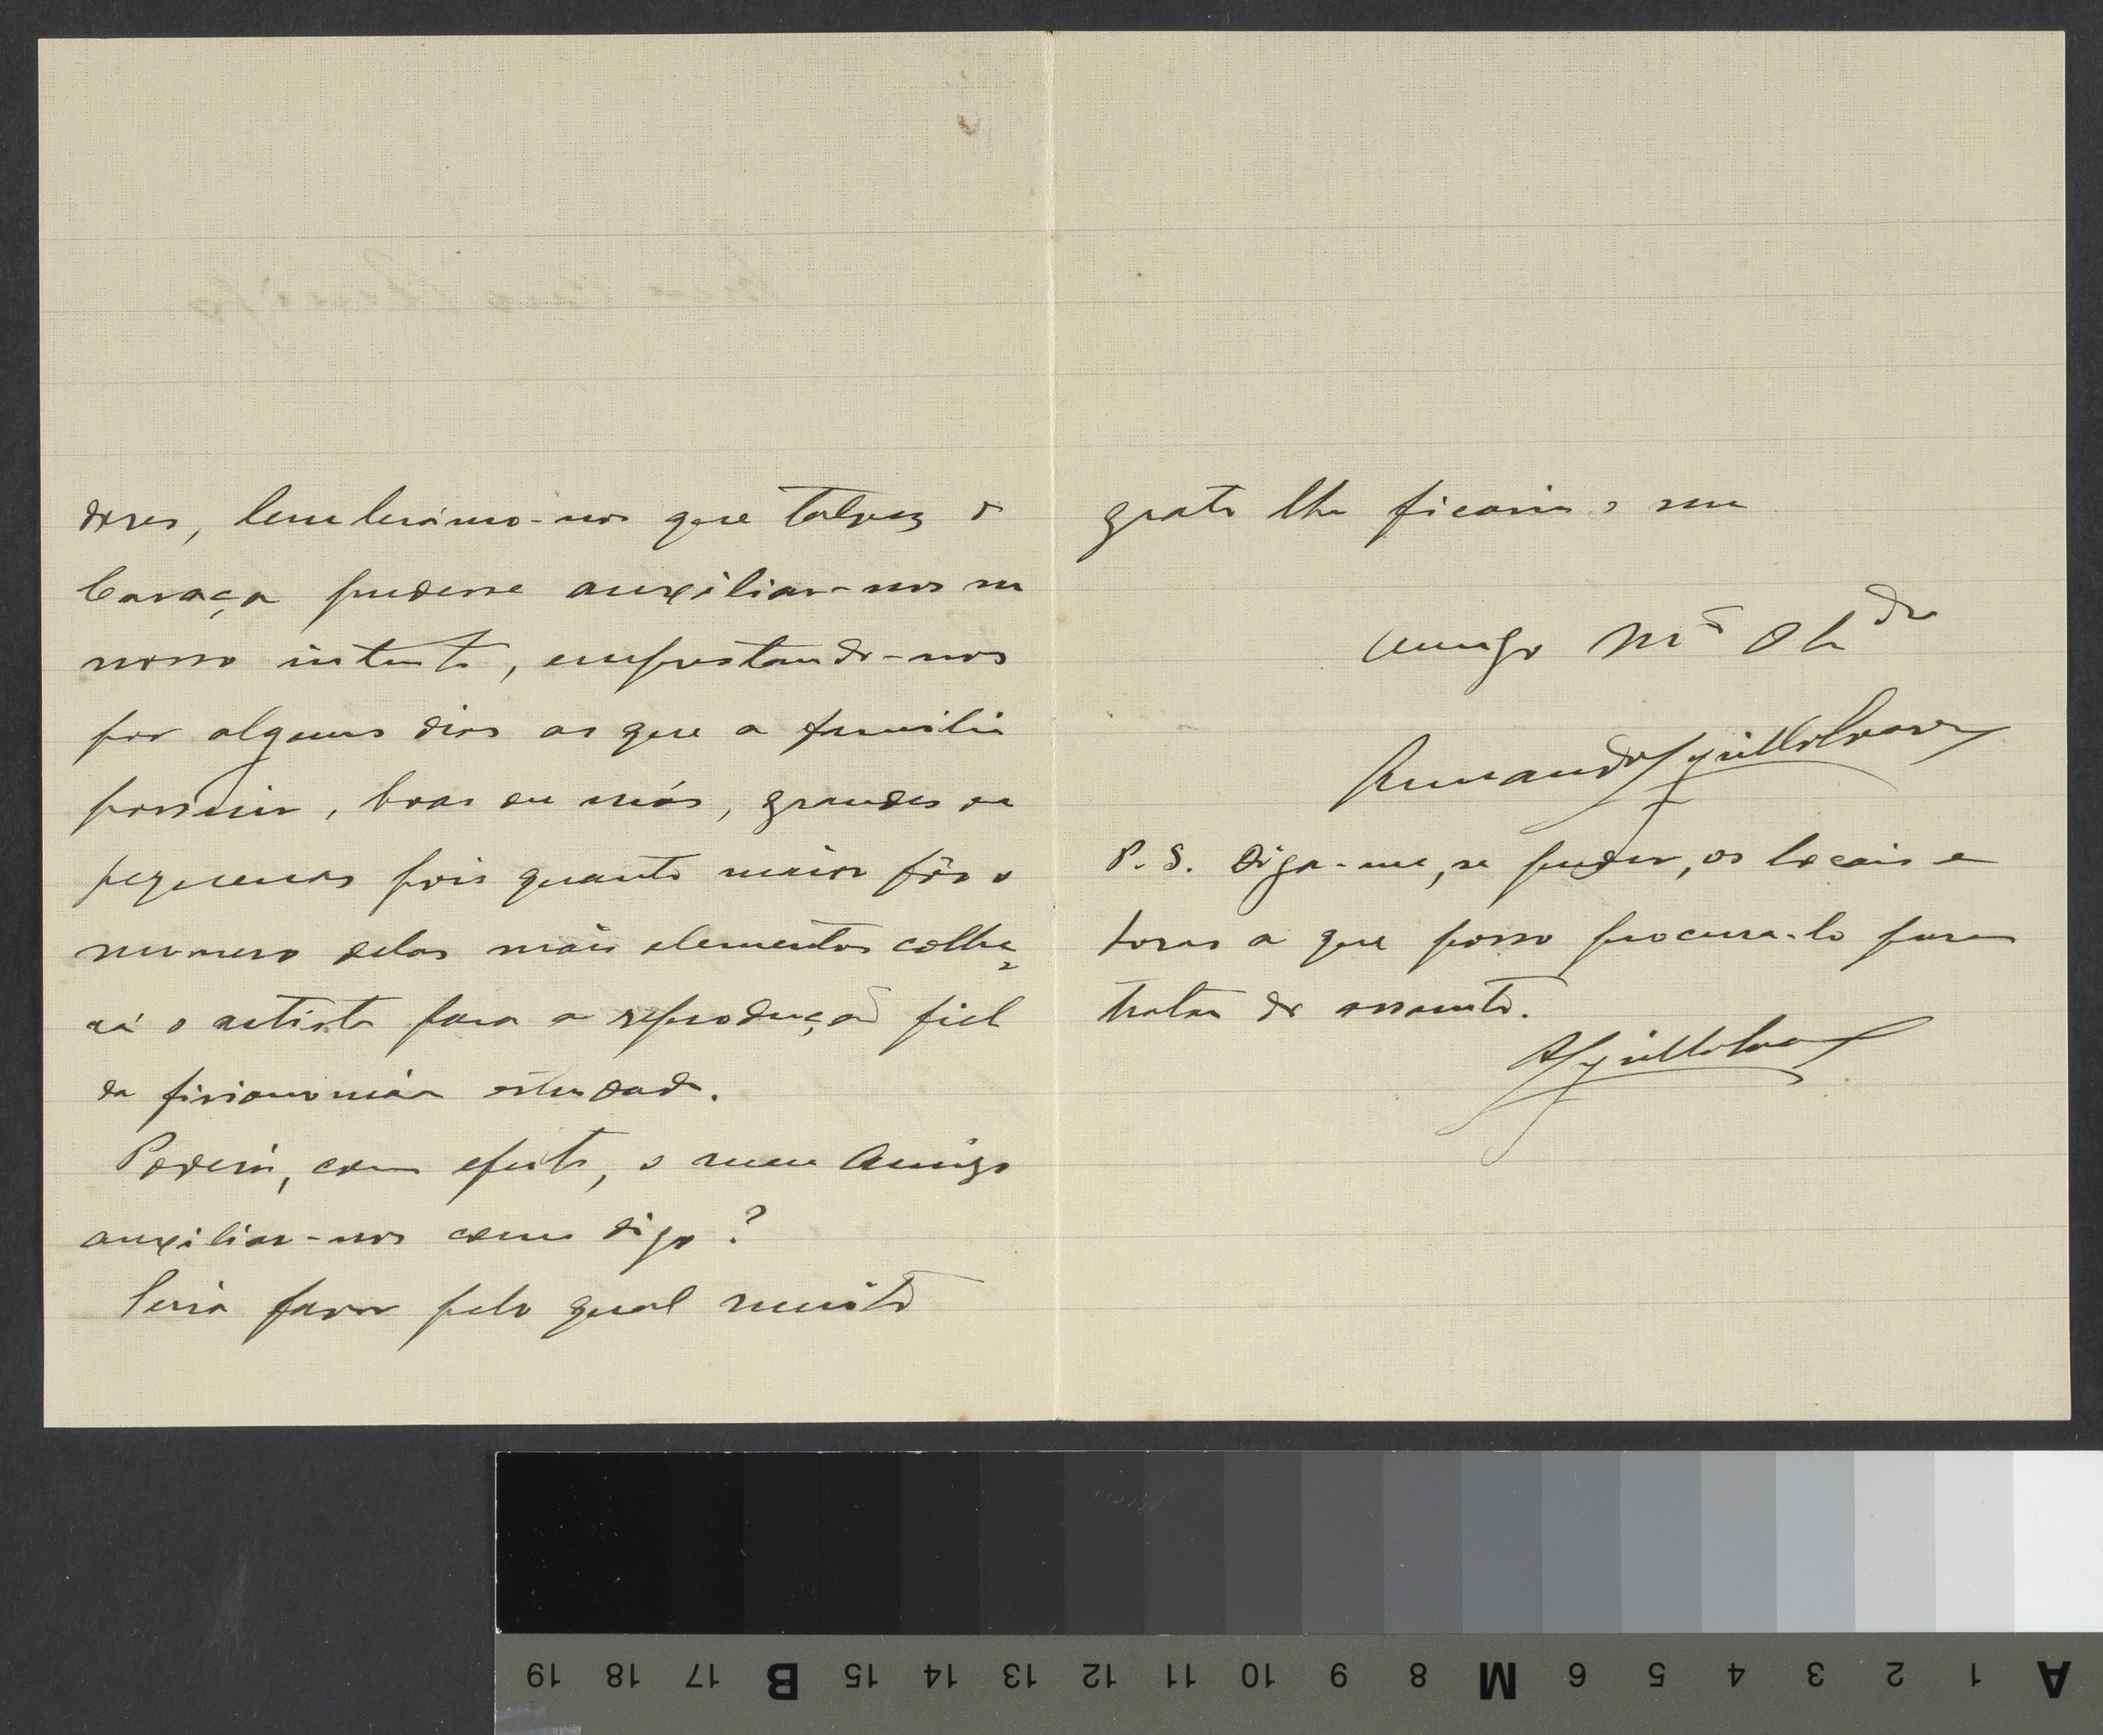 dores, lembrámo-nos que talvez o
Caraça pudesse auxiliar-nos no
nosso intento, emprestando-nos
por alguns dias as que a familia
possuir, boas ou más, grandes ou
pequenas pois quanto maior fôr o
numero delas mais elementos colhe-
rá o artista para a reprodução fiel
da fisionomia estudada.
Poderá, com efeito, o meu Amigo
auxiliar-nos como digo?
Seria favor pelo qual muito
grato lhe ficaria o seu
Amigo Mto Obdo
Armando
P.S. Diga-me, se puder, os locais e
horas a que posso procura-lo para
tratar do assunto.
A 1 2 3 4 5 6 M 8 9 10 11 12 13 14 15 B 17 18 19